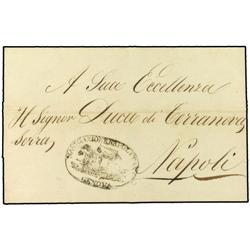 A Sua Eccellenza
Il Signor Duca di Terranova
Serra
Napoli
GENOVA